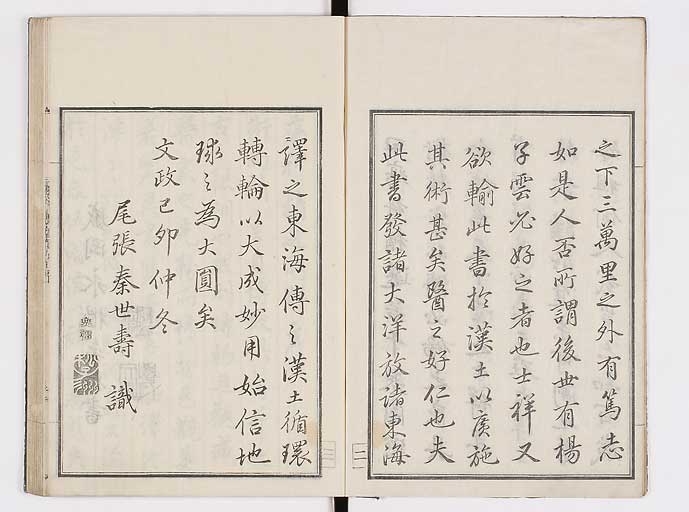 之下三萬里之外有篤志
如是人否所謂後世有楊
子雲必好之者也士祥又
欲輸此書於漢土以廣施
其術甚矣醫之好仁也夫
此書發諸大洋放諸東海
譯之東海傳之漢土循環
轉輪以大成妙用始信地
球之為大圓矣
文政己卯仲冬
尾張秦世壽識